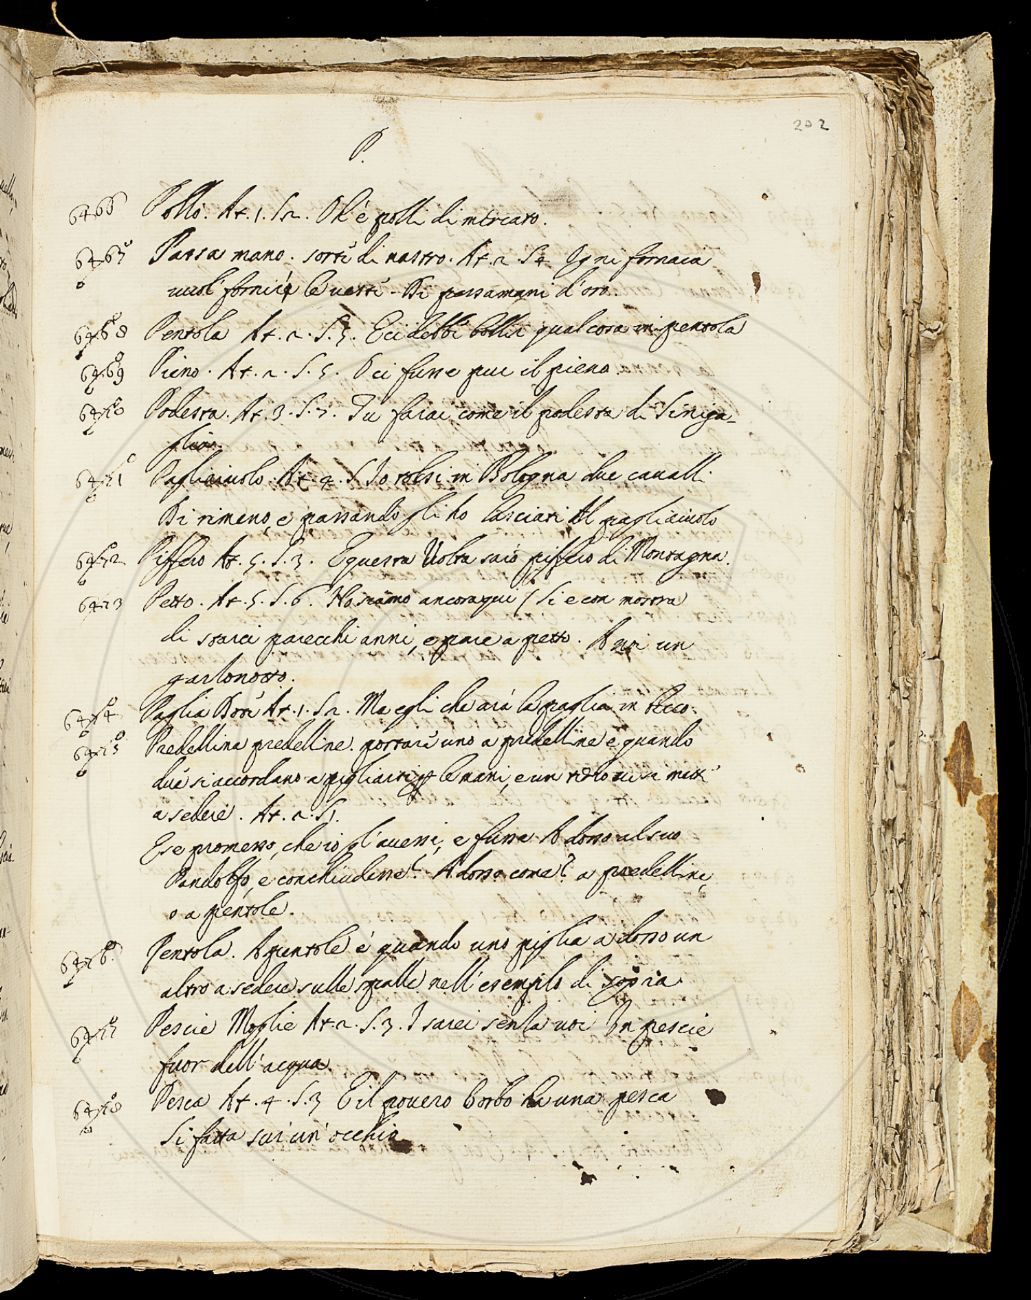 202
P.
6466 Polli. At. 1. S 2. Oh' è polli di mercato.
6467 Passa mano. sorte di nastro. At. 2 S 4 Ogni fornaia
vuol fornire la veste Di passamani d'oro.
6468 Pentola At. 2. S. 3. E ci debbe bollir qualcosa in pentola
6469 Pieno. At. 2. S. 5. O ci fusse pur il pieno
6470 Podesta. At. 3. S. 7. Tu farai come il podesta di Siniga-
glia.
6471 Pagliaiuolo. At. 4. S. Io tolsi in Bologna due cavalli
Di rimeno, e passando gli ho lasciati Al pagliaiuolo
6472 Piffero At. 5. S. 3. E questa Volta sarò piffero di Montagna.
6473 Petto. At. 5. S. 6. No siamo ancora qui / Si e con mostra
di starci parecchi anni, e pure a petto. Avrà un
garzonotto.
6474 Paglia At. 1. S 2. Ma egli che avrà la paglia in becco.
6475 Predellina predelline. portare uno a predelline è quando
due si accordano a pigliarsi le mani, e un terzo vi si mette
a sedere. At. 2. S 1.
E se promesso, che io gl'avessi, e fusse Adosso al suo
Pandolfo, e conchiudesse? Adosso come? a predelline,
o a pentole.
6476 Pentola. A pentole è quando uno piglia a dosso un
altro a sedere sulle spalle nell'esempilo di sopra
6477 Pescie Moglie At. 2. S. 3. I sarei senza voi Un pescie
fuor dell'acqua.
6478 Pesca At. 4. S. 3 E il povero Borbo ha una pesca
Si fatta sur'un'occhio